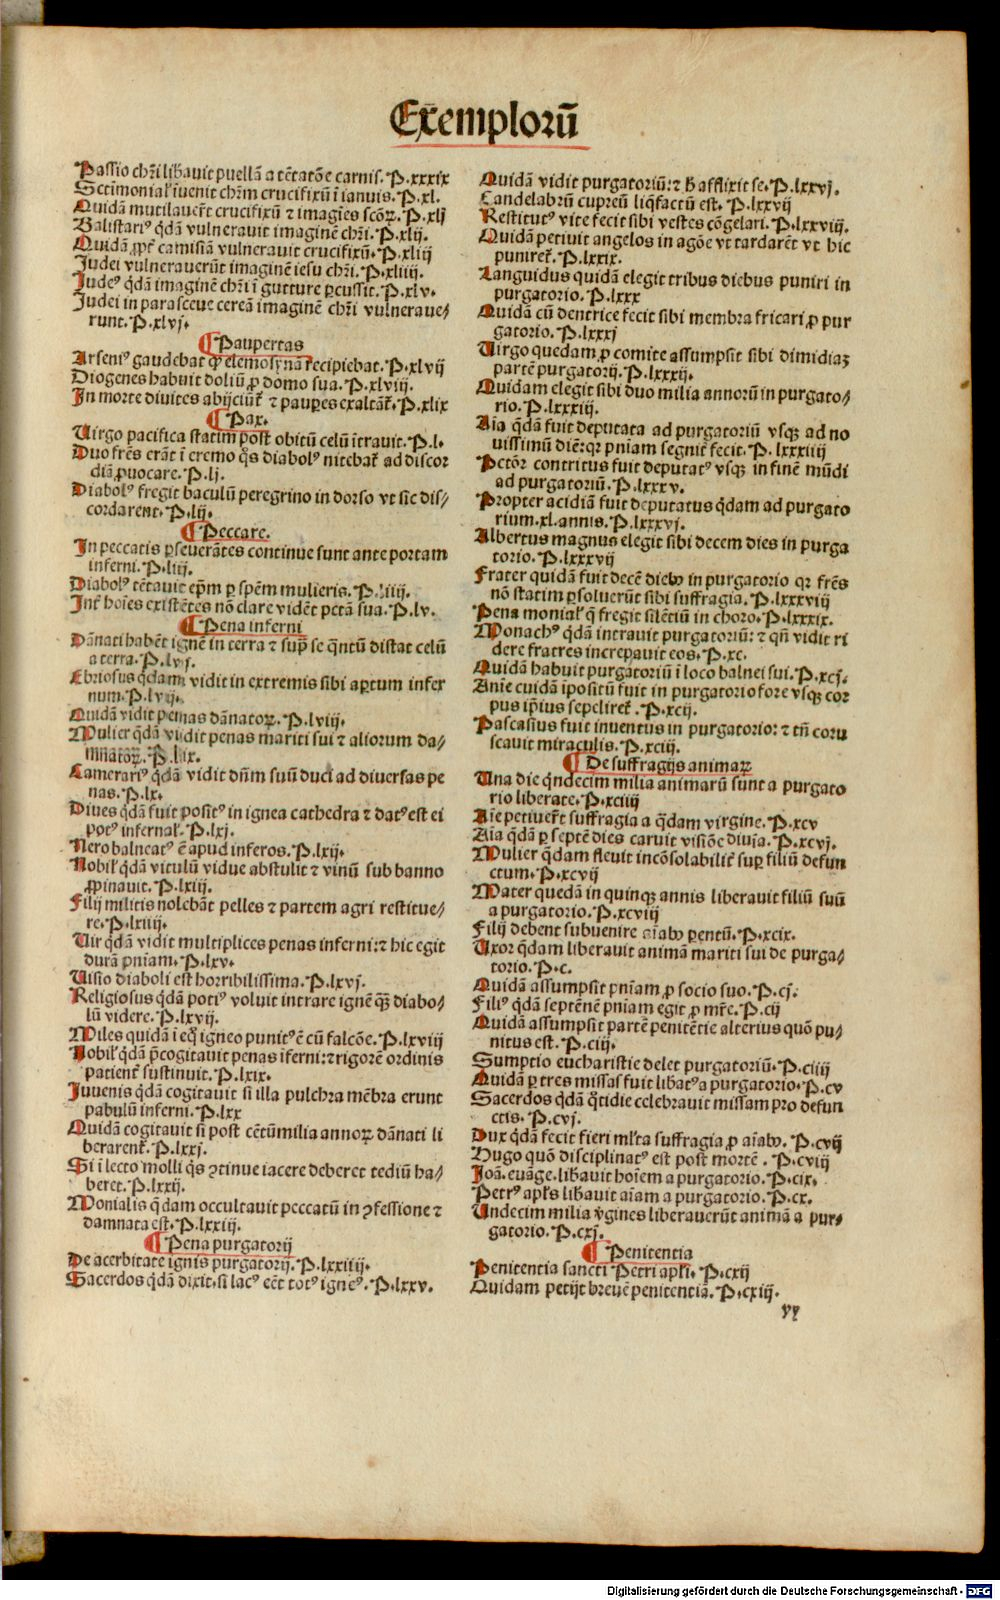 Exemplorū
Passio chr̄i lib̄auit puellā a tētatōe carnis. P.xxxix
Sctīmonial' īuenit chr̄m crucifixū ī ianuis. P.xl.
Quidā mutilauer̄t crucifixū ⁊ imagīes scōꝝ. P.xlj
Balistariꝰ qdā vulnerauit imaginē chr̄i. P.xlij.
Quidā ꝓpt̄ camisiā vulnerauit crucifixū. P.xliij
Judei vulnerauerūt imaginē iesu chr̄i. P.xliiij.
Judeꝰ qdā imaginē chr̄i ī gutture ꝑcussit. P.xlv.
Judei in parasceue cereā imaginē chr̄i vulneraue/
runt. P.xlvj.
¶ Paupertas
Arseniꝰ gaudebat qꝫ elemosynā recipiebat. P.xlvij
Diogenes habuit doliū ꝓ domo sua. P.xlviij.
In morte diuites abijciūt̄ ⁊ pauꝑes exaltāt̄. P.xlix
¶ Pax.
Uirgo pacifica statim post obitū celū ītrauit. P.l.
Duo frēs erāt ī eremo qs̄ diabolꝰ nitebat̄ ad discor
diā ꝓuocare. P.lj.
Diabolꝰ fregit baculū peregrino in dorso vt sic dis/
cordarent. P.lij.
¶ Peccare.
In peccatis ꝑseuerātes continue sunt ante portam
inferni. P.liij.
Diabolꝰ tētauit ep̄m ꝑ spēm mulieris. P.liiij.
Int̄ hoīes existētes nō clare vidēt pctā sua. P.lv.
¶ Pena inferni
Dānati habēt ignē in terra ⁊ supͣ se qntū distat celū
a terra. P.lvj.
Ebriosus qdam vidit in extremis sibi aꝑtum infer
num. P.lvij.
Quidā vidit penas dānatoꝝ. P.lviij.
Mulier qdā vidit penas mariti sui ⁊ aliorum da/
mnatoꝝ. P.lix.
Camerariꝰ qdā vidit dn̄m suū duci ad diuersas pe
nas. P.lx.
Diues qdā fuit positꝰ in ignea cathedra ⁊ datꝰ est ei
potꝰ infernal'. P.lxj.
Nero balneatꝰ ē apud inferos. P.lxij.
Nobil' qdā vitulū vidue abstulit ⁊ vinū sub banno
ꝓpinauit. P.lxiij.
Filij militis nolebāt pelles ⁊ partem agri restitue/
re. P.lxiiij.
Uir qdā vidit multiplices penas inferni: ⁊ hic egit
durā pn̄iam. P.lxv.
Uisio diaboli est horribilissima. P.lxvj.
Religiosus qdā potiꝰ voluit intrare ignē qꝫ diabo/
lū videre. P.lxvij.
Miles quidā ī eq̊ igneo punitꝰ ē cū falcōe. P.lxviij
Nobil' qdā p̄cogitauit penas īferni: ⁊ rigorē ordinis
patient̄ sustinuit. P.lxix.
Juuenis qdā cogitauit si illa pulchra mēbra erunt
pabulū inferni. P.lxx
Quidā cogitauit si post cētūmilia annoꝝ dānati li
berarent̄. P.lxxj.
Si ī lecto molli qs̄ ꝯtinue iacere deberet tediū ha/
beret. P.lxxij.
Monialis qdam occultauit peccatū in ꝯfessione ⁊
damnata est. P.lxxiij.
¶ Pena purgatorij
De acerbitate ignis purgatorij. P.lxxiiij.
Sacerdos qdā dixit. si lacꝰ eēt totꝰ igneꝰ. P.lxxv.
Quidā vidit purgatoriū: ⁊ h̄ afflixit se. P.lxxvj.
Candelabrū cupreū liqfactū est. P.lxxvij
Restitutꝰ vite fecit sibi vestes cōgelari. P.lxxviij.
Quidā petiuit angelos in agōe vt tardarēt vt hic
puniret̄. P.lxxix.
Languidus quidā elegit tribus diebus puniri in
purgatorio. P.lxxx
Quidā cū dentrice fecit sibi membra fricari ꝓ pur
gatorio. P.lxxxj
Uirgo quedam ꝓ comite assumpsit sibi dimidiaꝫ
partē purgatorij. P.lxxxij.
Quidam elegit sibi duo milia annorū in purgato/
rio. P.lxxxiij.
Aīa qdā fuit deputata ad purgatoriū vsqꝫ ad no
uissimū diē: qr pn̄iam segnit̄ fecit. P.lxxxiiij
Pctōr contritus fuit deputatꝰ vsqꝫ in finē mūdi
ad purgatoriū. P.lxxxv.
Propter acidiā fuit deputatus qdam ad purgato
rium. xl. annis. P.lxxxvj.
Albertus magnus elegit sibi decem dies in purga
torio. P.lxxxvij
Frater quidā fuit decē diebꝰ in purgatorio qr frēs
nō statim ꝑsoluerūt sibi suffragia. P.lxxxviij
Pena monial' q̄ fregit silētiū in choro. P.lxxxix.
Monachꝰ qdā intrauit purgatoriū: ⁊ qn̄ vidit ri
dere fratres increpauit eos. P.xc.
Quidā habuit purgatoriū ī loco balnei sui. P.xcj.
Anīe cuidā īpositū fuit in purgatorio fore vsqꝫ cor
pus ip̄ius sepeliret̄. P.xcij.
Pascasius fuit inuentus in purgatorio: ⁊ tn̄ coru
scauit miraculis. P.xciij.
¶ De suffragijs animaꝝ
Una die qndecim milia animarū sunt a purgato
rio liberate. P.xciiij
Aīe petiuer̄t suffragia a qdam virgine. P.xcv
Aīa qdā ꝑ septē dies caruit visiōe diuīa. P.xcvj.
Mulier qdam fleuit incōsolabilit̄ suꝑ filiū defun
ctum. P.xcvij
Mater quedā in quinqꝫ annis liberauit filiū suū
a purgatorio. P.xcviij
Filij debent subuenire aīabꝰ ꝑentū. P.xcix.
Uxor qdam liberauit animā mariti sui de purga/
torio. P.c.
Quidā assumpsit pn̄iam ꝓ socio suo. P.cj.
Filiꝰ qdā septēnē pniam egit ꝓ mr̄e. P.cij
Quidā assumpsit partē penitētie alterius quō pu/
nitus est. P.ciij.
Sumptio eucharistie delet purgatoriū. P.ciiij
Quidā ꝑ tres missas fuit lib̄atꝰ a purgatorio. P.cv
Sacerdos qdā q̊tidie celebrauit missam pro defun
ctis. P.cvj.
Dux qdā fecit fieri ml'ta suffragia ꝓ aīabꝰ. P.cvij
Hugo quō disciplinatꝰ est post mortē. P.cviij
Joā. euāge. lib̄auit hoīem a purgatorio. P.cix.
Petrꝰ apl's lib̄auit aīam a purgatorio. P.cx.
Undecim milia v̄gines liberauerūt animā a pur/
gatorio. P.cxj.
¶ Penitentia
Penitentia sancti Petri apl'i. P.cxij
Quidam petijt breuē penitentiā. P.cxiij.
yy
Digitalisierung gefördert durch die Deutsche Forschungsgemeinschaft - DFG